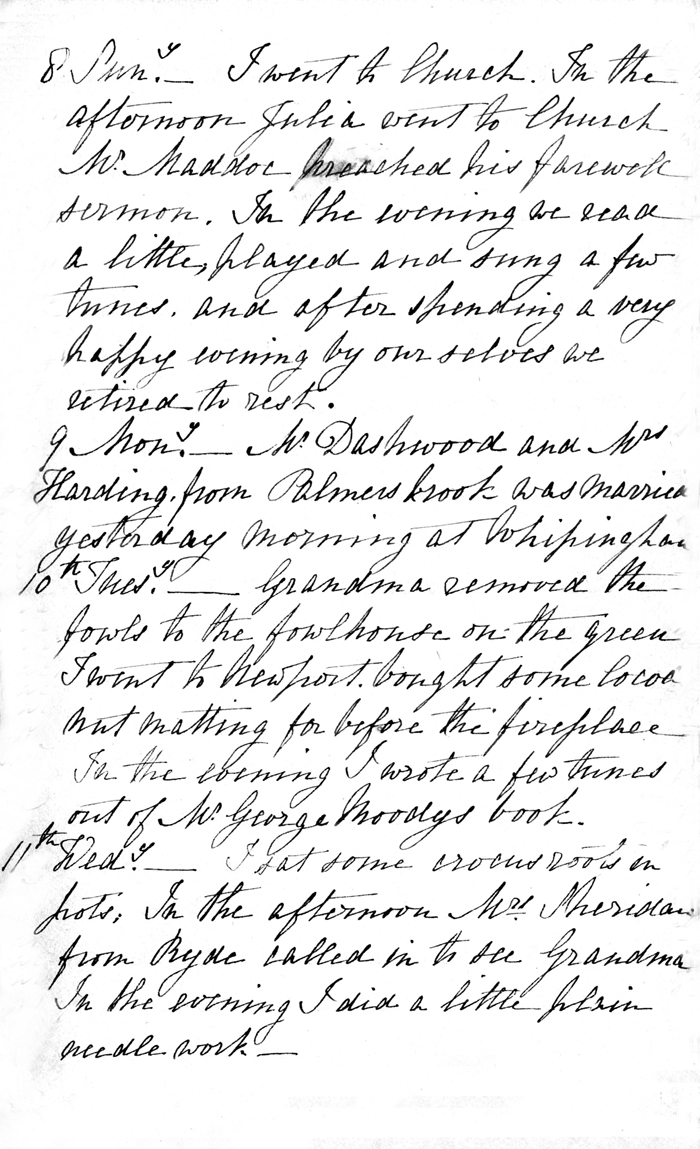 8 Sun.y — I went to Church. In the
afternoon Julia went to Church
Mr. Maddoc preached his farewell
sermon. In the evening we read
a little, played and sung a few
tunes. and after spending a very
happy evening by our selves we
retired to rest.
9 Mon.y — Mr. Dashwood and Mrs
Harding from Palmers brook was married
yesterday morning at Whippingham
10th Tues.y — Grandma removed the
fowls to the fowlhouse on the green
I went to Newport. bought some Cocoa
nut matting for before the fireplace
In the evening I wrote a few tunes
out of Mr. George Moodys book.
11th Wed.y — I sat some crocus roots in
pots; In the afternoon Mrs. Sheridan
from Ryde called in to see Grandma
In the evening I did a little plain
needle work —